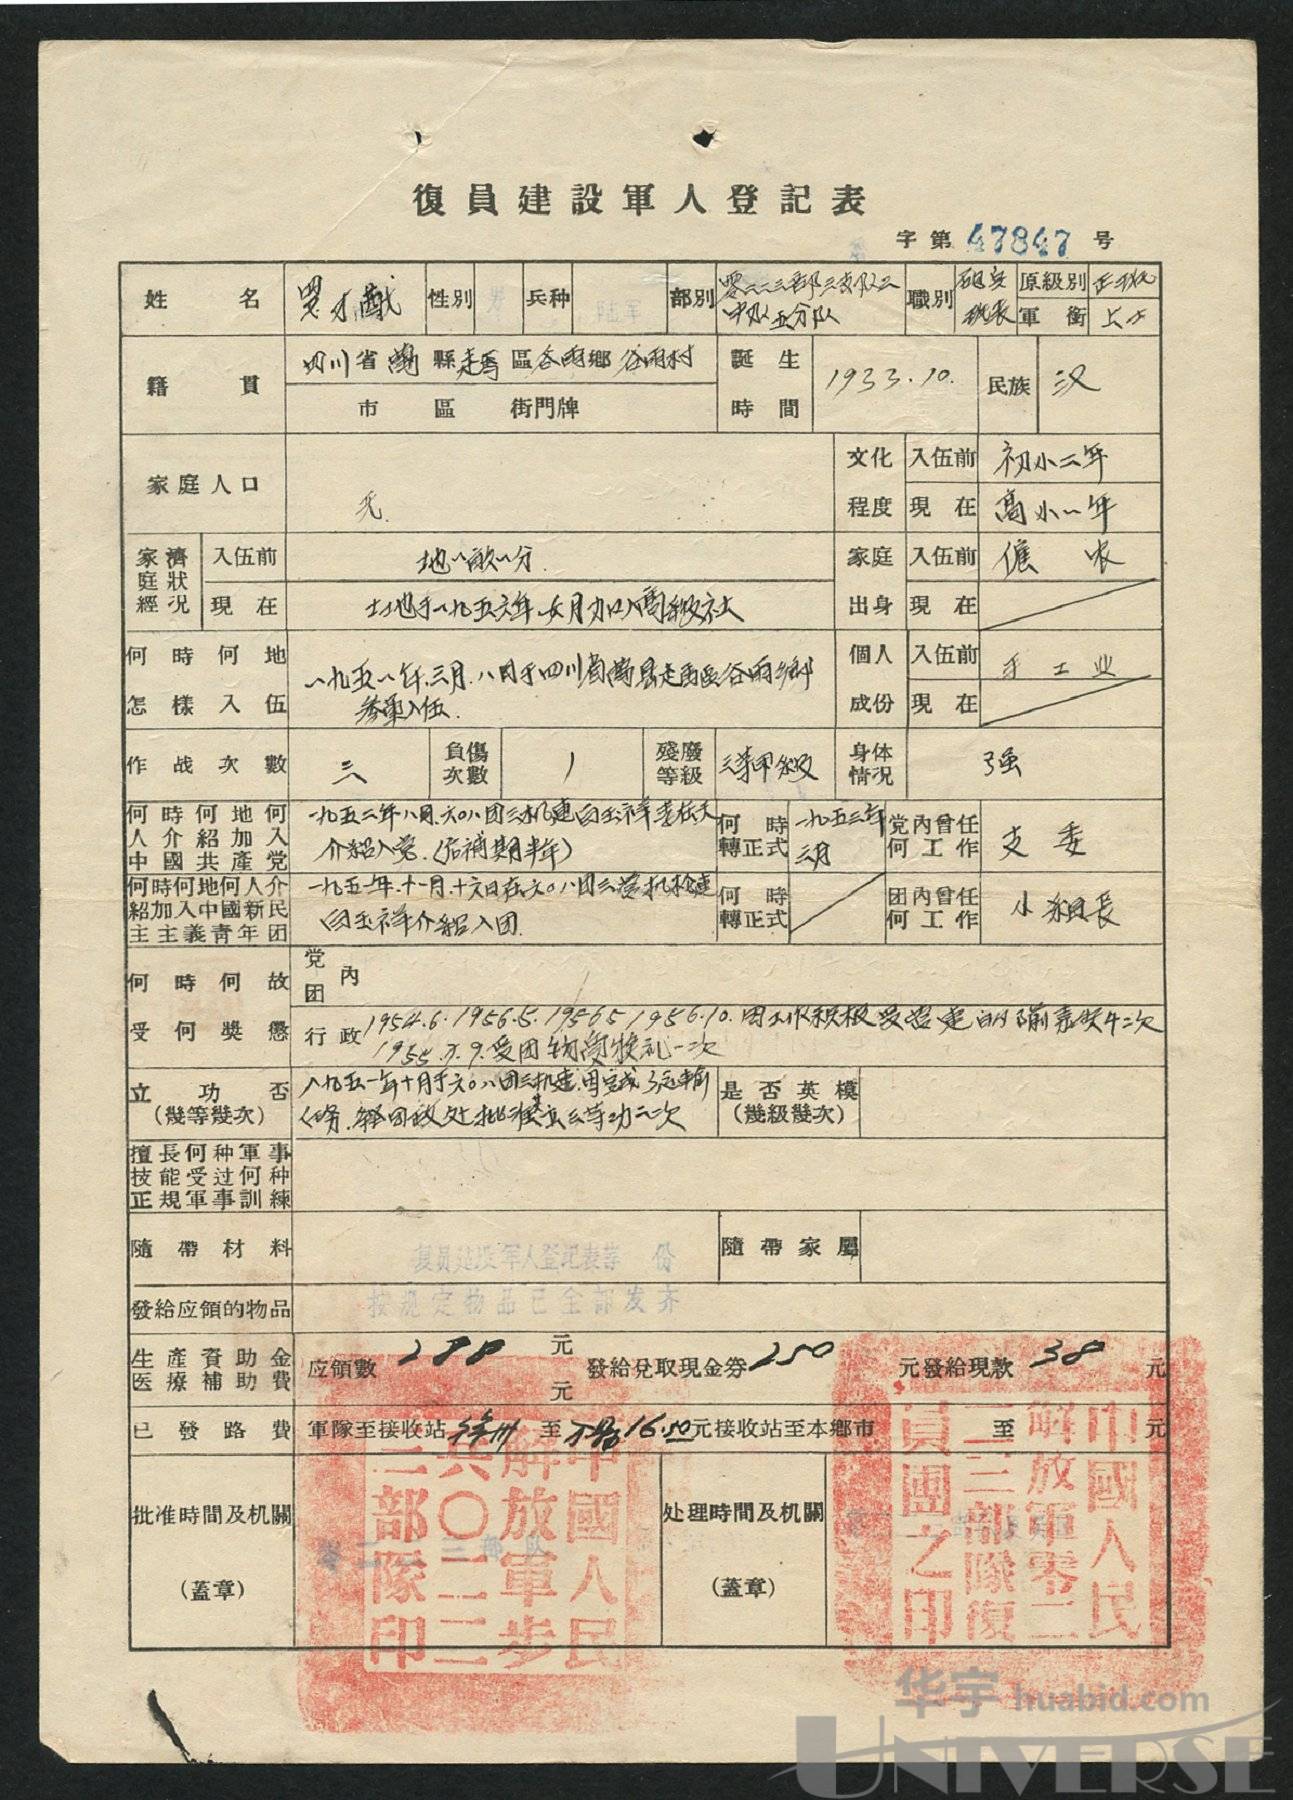 復員建設軍人登記表
字第 47847 号
姓名 性別 男 兵种 陆军 部別 零二二三部隊三支队二 職別 炮兵 原級別 正班
中队五分队 班长 軍衡 上士
籍貫 四川省萬縣走馬區谷雨鄉谷雨村 誕生時間 1933.10. 民族 汉
市 區 街門牌
家庭人口 无. 文化程度 入伍前 初小二年
現在 高小一年
家庭經濟狀况 入伍前 地一畝一分. 家庭出身 入伍前 僱农
現在 土地于一九五六年 月加入高級社 現在
何時何地怎樣入伍 一九五一年.三月.八日于四川省萬县走馬區谷雨鄉 個人成份 入伍前 手工业
參軍入伍. 現在
作战次數 三 負傷次數 1 殘廢等級 三等甲級 身体情况 强
何時何地何人介紹加入中國共產党 一九五二年八月.六〇八团三机連白玉祥 在天 何時轉正式 一九五三年 党內曾任何工作 支委
介紹入党.(后補期半年) 三月
何時何地何人介紹加入中國新民主主義青年团 一九五一年.十一月.十六日在六〇八团三营机枪連 何時轉正式 团內曾任何工作 小組長
白玉祥介紹入团.
何時何故受何獎懲 党团內
行政 1954.6.1956.5.19565 1956.10.因工作积极受營連 嘉獎 二次
1955. .9.受团 獎 礼一次
立功否(幾等幾次) 一九五一年十月于六〇八团三机連.因完成 运輸 是否英模(幾級幾次)
任务.經团政处批准立三等功二次
擅長何种軍事技能受过何种正規軍事訓練
隨帶材料 復員建設军人登記表等 份 隨帶家屬
發給应領的物品 按規定物品已全部发齐
生產資助金 医療補助費 应領數 288 元 發給兌取現金券 250 元發給現款 38 元
元
已發路費 軍隊至接收站 徐州 至 万县 16.50 元接收站至本鄉市 至 元
批准時間及机關 处理時間及机關
(蓋章) (蓋章)
中國人民
解放軍步
兵〇二二
三部隊印
中國人民
解放軍零二
二三部隊復
員團之印
华宇 huabid.com
UNIVERSE